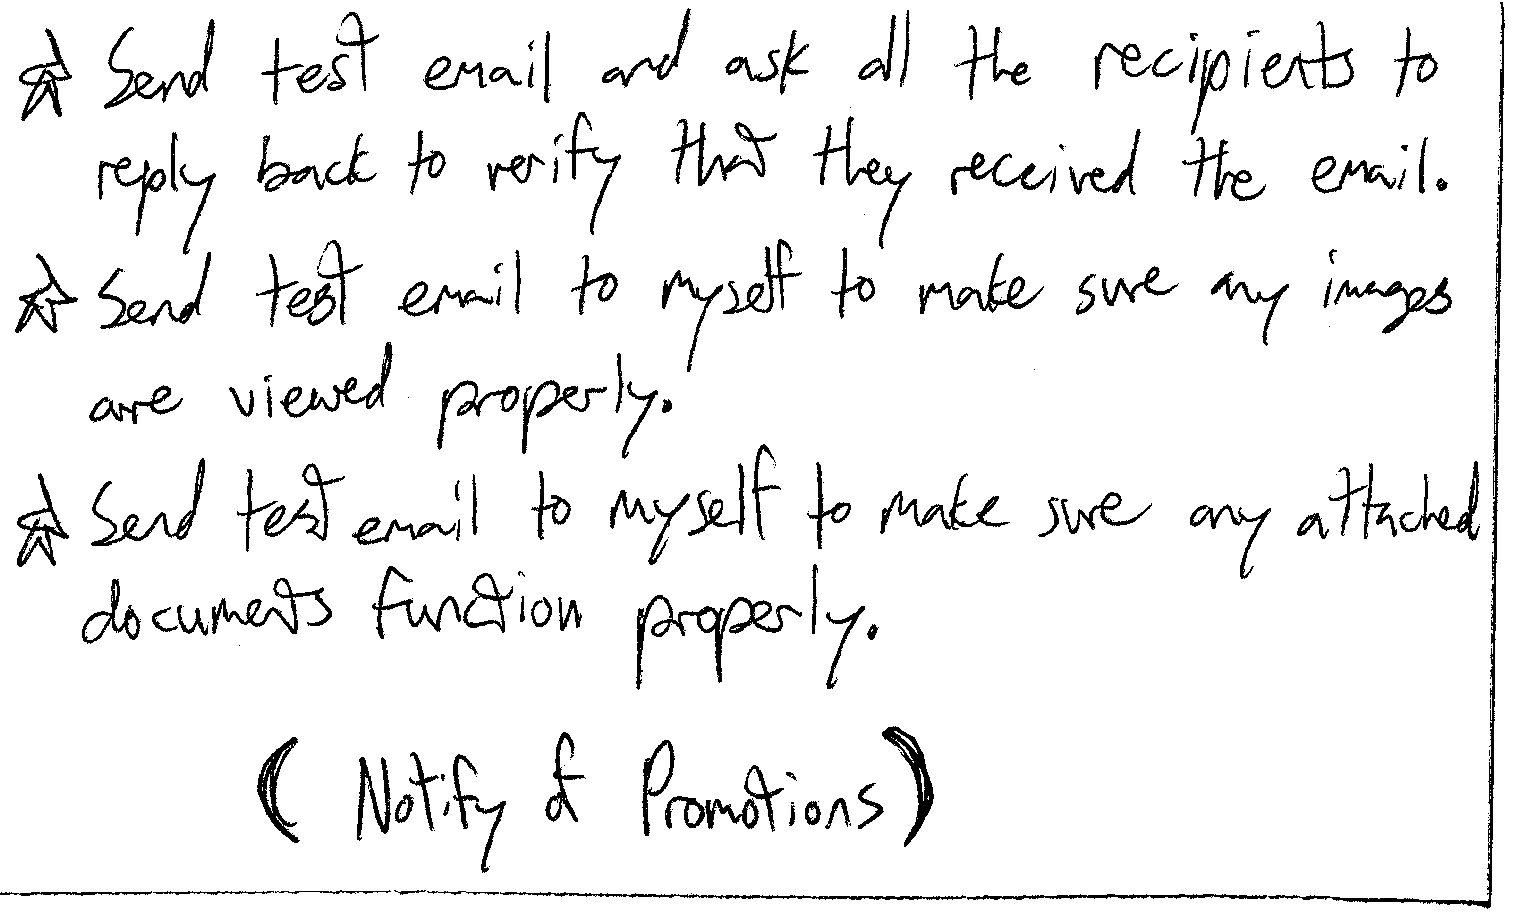 ☆ Send test email and ask all the recipients to
reply back to verify that they received the email.
☆ Send test email to myself to make sure any images
are viewed properly.
☆ Send test email to myself to make sure any attached
documents function properly.
(Notify of Promotions)